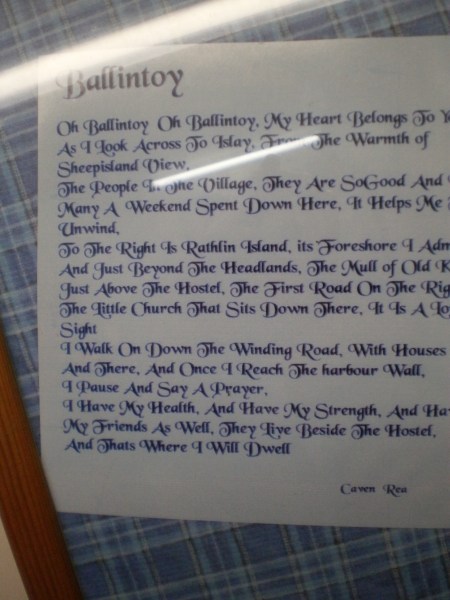 Ballintoy
Oh Ballintoy Oh Ballintoy, My Heart Belongs To
As I Look Across To Islay, From The Warmth of
Sheepisland View,
The People In The Village, They Are SoGood And
Many A Weekend Spent Down Here, It Helps Me
Unwind,
To The Right Is Rathlin Island, its Foreshore I
And Just Beyond The Headlands, The Mull of Old
Just Above The Hostel, The First Road On The
The Little Church That Sits Down There, It Is A
Sight
I Walk On Down The Winding Road, With Houses
And There, And Once I Reach The harbour Wall,
I Pause And Say A Prayer,
I Have My Health, And Have My Strength, And
My Friends As Well, They Live Beside The Hostel,
And Thats Where I Will Dwell
Caven Rea